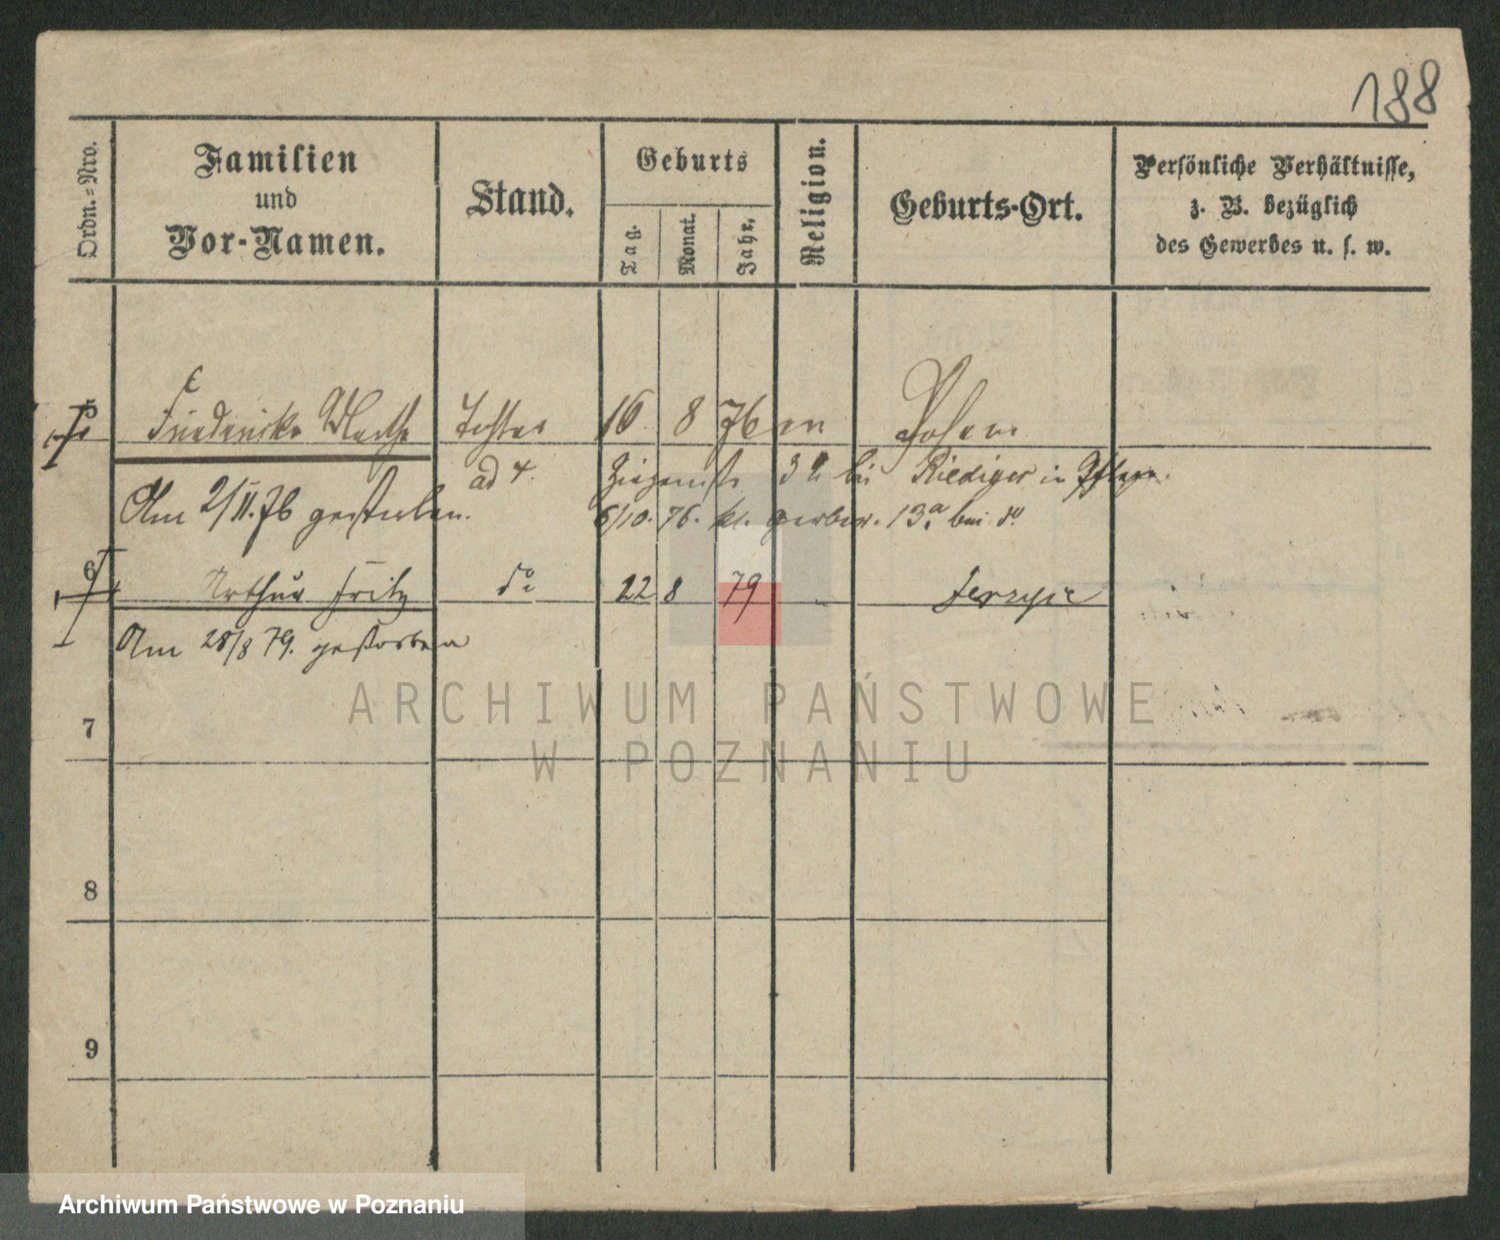 188
Ordn.-Nro.
Familien
und
Vor-Namen.
Stand.
Geburts
Tag.
Monat.
Jahr.
Religion.
Geburts-Ort.
Persönliche Verhältnisse,
z. B. bezüglich
des Gewerbes u. s. w.
5 Friederike Tochter 16. 8 76 Posen
ad 4. bei Riediger in Pflege.
Am 2/11.76 gestorben. 6/10. 76. kl. gerber. 13a. bei do
6 Arthur Fritz do 22 8 79 Jerzyce
Am 28/8 79. gestorben
ARCHIWUM PAŃSTWOWE
7
W POZNANIU
8
9
Archiwum Państwowe w Poznaniu